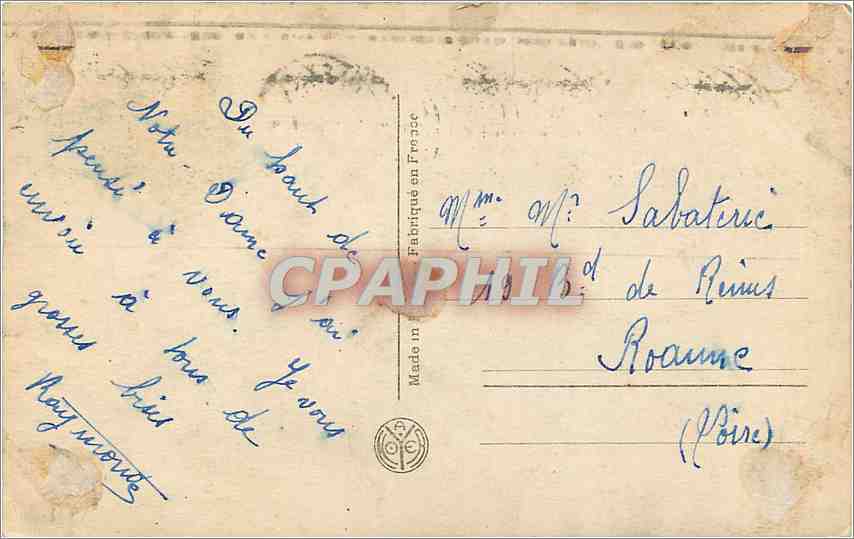 Du haut de
Notre-Dame j'ai
pensé à vous. Je vous
envoie à tous de
grosses bises
Raymonde
Made in Fabriqué en France
Mme M? Sabaterie
19 Bd de Reims
Roanne
(Loire)
CPAPHIL
A
O E